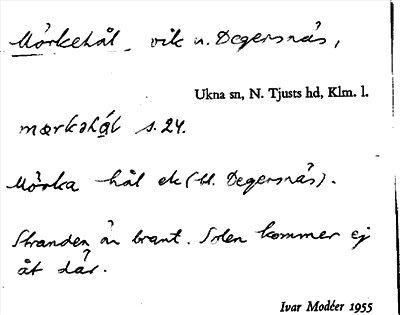 Mörkehål, vik n. Degersnäs,
Ukna sn, N. Tjusts hd, Klm. l.
mœrkəhál s. 24.
Mörka hål ek (bl. Degersnäs).
Stranden är brant. Solen kommer ej
åt där.
Ivar Modéer 1955